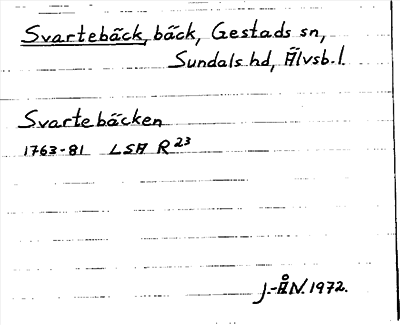 Svartebäck, bäck, Gestads sn,
Sundals hd, Älvsb. l.
Svartebäcken
1763-81 LSA R 23
J.-Å N. 1972.